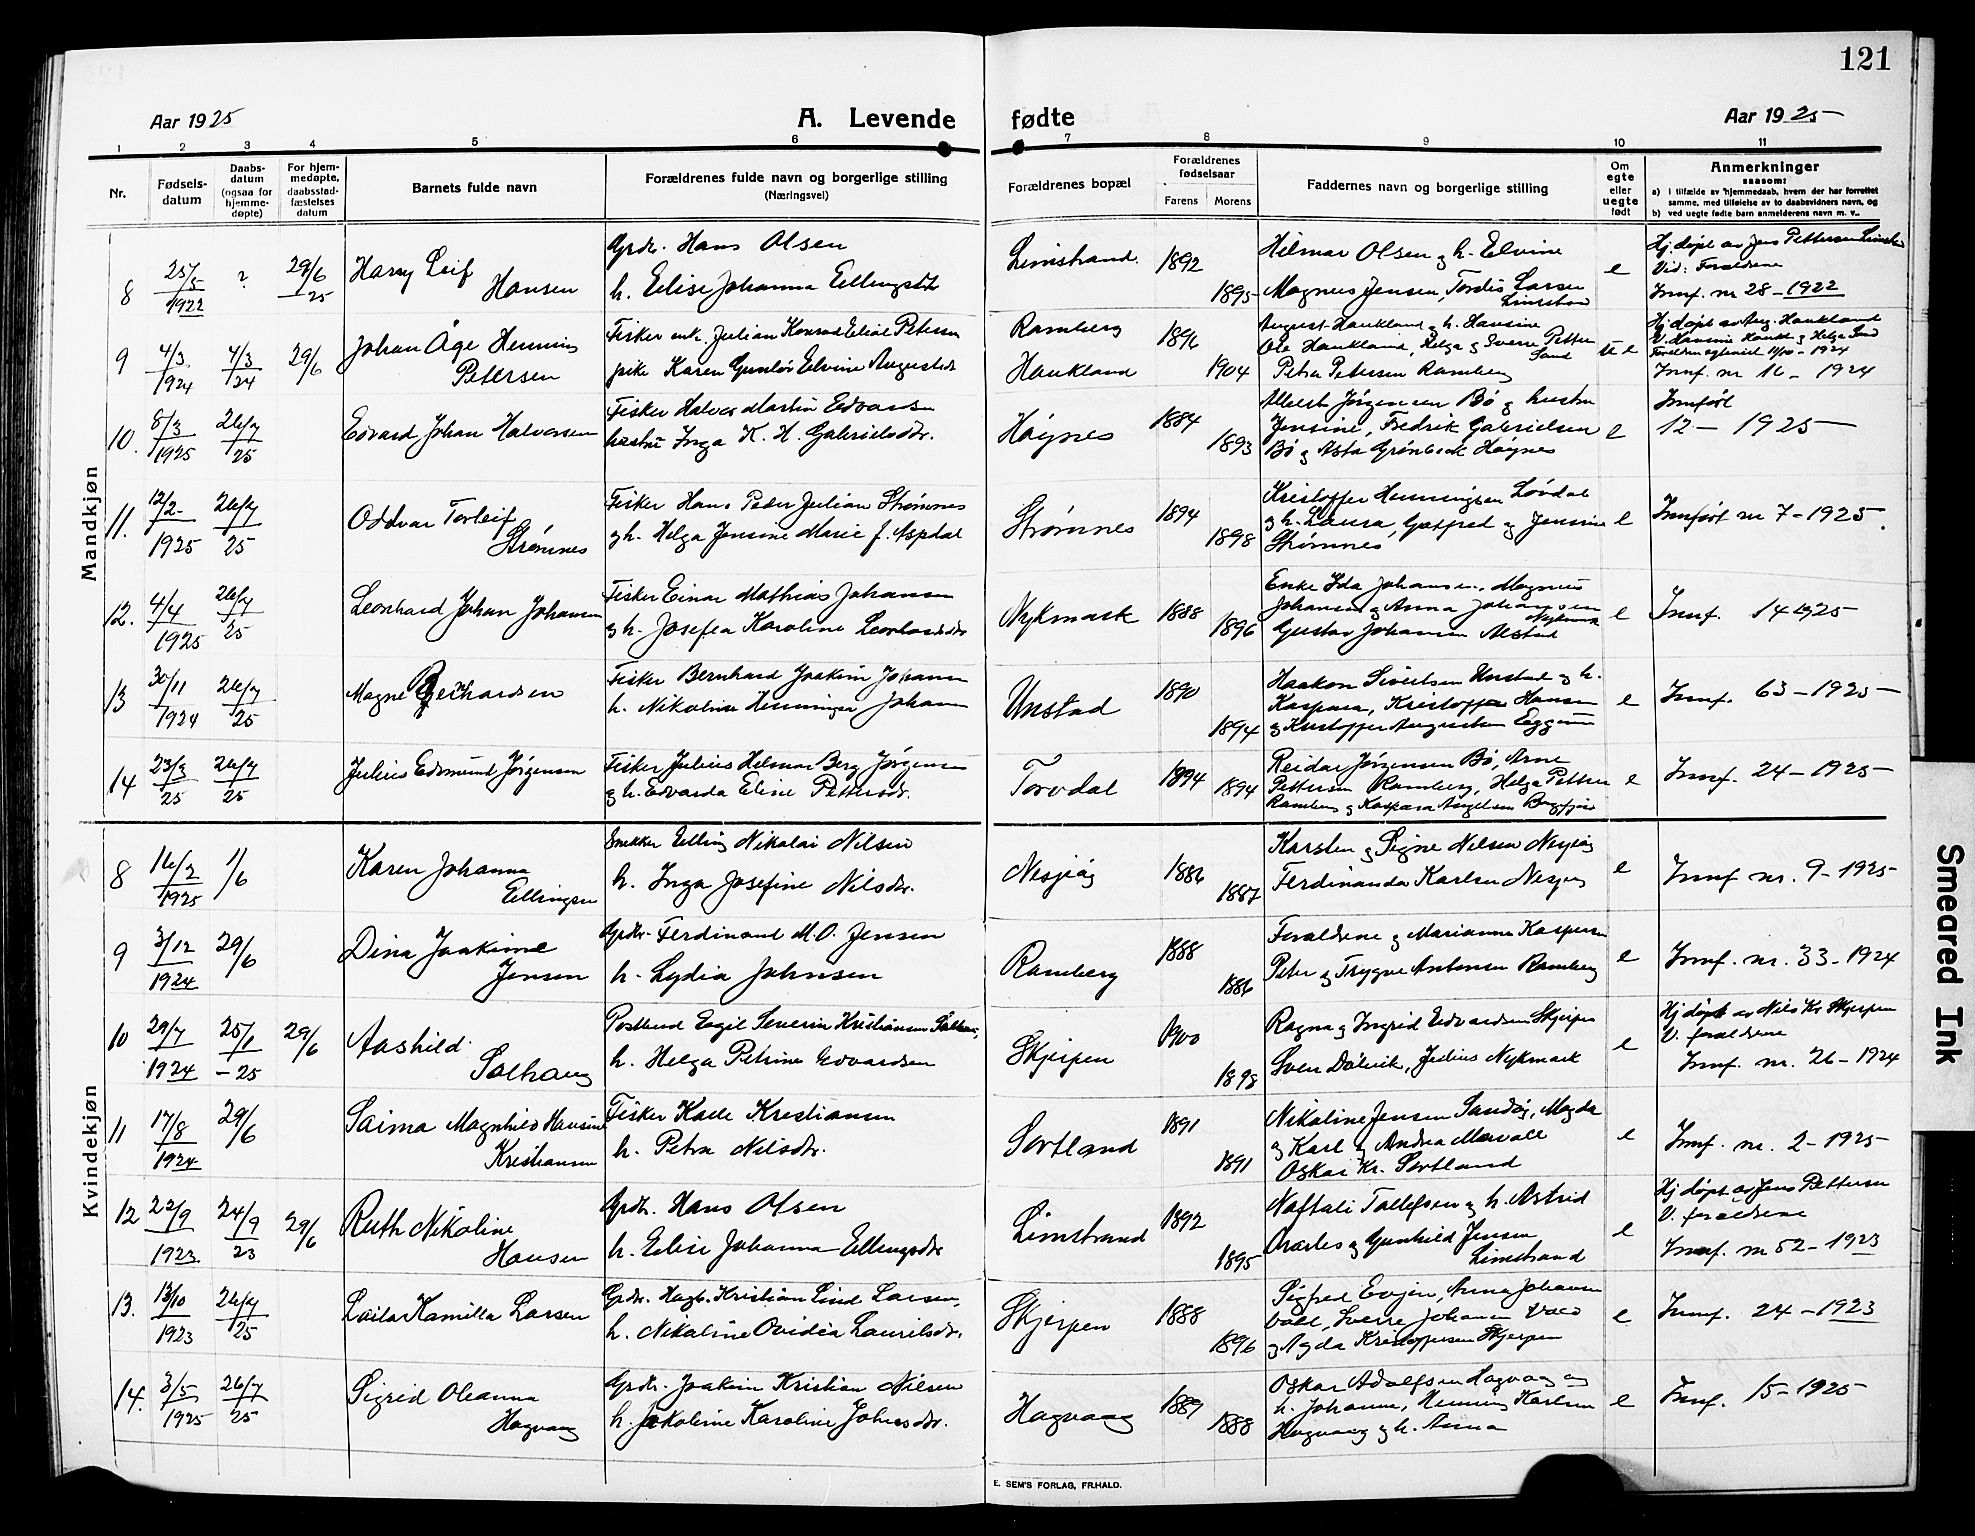 121
Aar 1925
A. Levende
fødte
Aar 1925
1 2 3 4 5 6 7 8 9 10 11
Nr.
Fødsels-
datum
Daabs-
datum
(ogsaa for
hjemme-
døpte)
For hjem-
medøpte,
daabsstad-
fæstelses
datum
Barnets fulde navn
Forældrenes fulde navn og borgerlige stilling
(Næringsvei)
Forældrenes bopæl
Forældrenes
fødselsaar
Farens
Morens
Faddernes navn og borgerlige stilling
Om
egte
eller
uegte
født
Anmerkninger
saasom:
a) i tilfælde av hjemmedaab, hvem der har forrettet
samme, med tilføielse av to daabsvidners navn, og
b) ved uegte fødte barn anmelderens navn m. v..
Mandkjøn
8
25/5
1922
?
29/6
25
Harry Leif
Hansen
Grdr. Hans Olsen
h. Elise Johanna Ellingsdtr
Limstrand
1892
1895
Hilmar Olsen og h. Elvine
Magnus Jensen, Tordis Larsen
Limstrand
e
Hj. døpt av Jens Pettersen Limstrand
Vid: Forældrene
Innf. nr 28 - 1922
9
4/3
1924
4/3
24
29/6
Johan Åge Henning
Pettersen
Fisker enk. Julian Konrad Elial Petersen
pike Karen Gunlór Elvine Augustsdtr
Ramberg
Haukland
1896
1904
August Haukland og h. Hansine
Ole Haukland, Helga og Sverre Petter
Sund
Petra Petersen Ramberg
u e
Hj. døpt av Aug. Haukland
V. Hansine Haukl. og Helga Sund
Innf. nr 16 - 1924
10.
8/3
1925
26/7
25
Edvard Johan Halvorsen
Fisker Halvor Martin Edvards
hustru Inga K. H. Gabrielsdtr.
Høynes
1884
1893
Albert Jørgensen Bø og hustru
Jensine, Fredrik Gabrielsen
Bø og Asta Grønbeck Høynes
e
Innført
12 - 1925
11.
12/2
1925
26/7
25
Oddvar Torleif
Strømnes
Fisker Hans Peder Julian Strømnes
og h. Helga Jensine Marie f. Aspdal
Strømnes
1894
1898
Kristoffer Henningsen Løvdal
og h. Laura, Gotfred og Jensine
Strømnes
e
Innført nr 7 - 1925.
12.
4/4
1925
26/7
25
Leonhard Johan Johansen
Fisker Einar Mathias Johansen
og h. Josefea Karoline Leonhardsdtr
Nykmark
1888
1896
Enke Ida Johansen, Magnus
Johansen og Anna Johansen
Nykmark
Gustav Johansen Alstad
e
Innf. 14 1925
13
30/11
1924
26/7
25
Magne Gerhardsen
Fisker Bernhard Joakim Johansen
h. Nikoline Henninga Johansen
Unstad
1890
1894
Haakon Sivertsen Unstad og h.
Kaspara, Kristoffer Hansen
og Kristoffer Augustsen Eggum
e
Innf. 63 - 1925
14
23/3
25
26/7
25
Julius Edmund Jørgensen
Fisker Julius Helmar Berg Jørgensen
og h. Edvarda Eline Pettersdtr.
Torvdal
1894
1894
Reidar Jørgensen Bø, Arne
Pettersen Ramberg, Helga Petters
Ramberg og Kaspara Angelsen Borgfjor
e
Innf. 24 - 1925
Kvindekjøn
8
16/2
1925
1/6
Karen Johanna
Ellingsen
Snekker Elling Nikolai Nilsen
h. Inga Josefine Nilsdtr.
Nesjeåg
1886
1887
Karsten og Signe Nilsen Nesjeåg
Ferdinanda Karlsen Nesjeåg
e
Innf nr. 9 - 1925
9
3/12
1924
29/6
Dina Joakime
Jensen
Grdr. Ferdinand M. O. Jensen
h. Lydia Johnsen
Ramberg
1888
1886
Forældrene og Marianne Kaspersen
Peter og Trygve Antonsen Ramberg
e
Innf. nr. 33 - 1924
10
29/7
1924
25/1
- 25
29/6
Aashild
Solhaug
Postbud Engil Severin Kristiansen Solhaug,
h. Helga Petrine Edvardsen
Skjerpen
1900
1898
Ragna og Ingrid Edvardsen Skjerpen
Sven Dalvik, Julius Nykmark
e
Hj døpt av Nils Kr Skjerpen
V. forældrene
Innf. nr. 26 - 1924
11
17/8
1924
29/6
Saima Magnhild Hansine
Kristiansen
Fisker Kaale Kristiansen
h. Petra Nilsdtr.
Sortland
1891
1891
Nikoline Jensen Sandøy, Magda
og Karl og Andrea Mærvoll
Oskar Kr. Sortland
e
Innf. nr. 2 - 1925
12
22/9
1923
24/9
23
29/6
Ruth Nikoline
Hansen
Grdr. Hans Olsen
h. Elise Johanna Ellingsdtr
Limstrand
1892
1895
Naftali Tollefsen og h. Astrid
Charles og Gunhild Jensen
Limstrand
e
Hj døpt av Jens Pettersen
V. forældrene
Innf. nr 52 - 1923
13.
13/10
1923
26/7
25
Laila Kamilla Larsen
Grdr. Hagb. Kristian Lind Larsen,
h. Nikoline Ovidea Lauritsdtr.
Skjerpen
1888
1896
Sigfred Evjen, Anna Johansen
Voll, Sverre Johansen Vold
og Agda Kristoffersen Skjerpen
e
Innf. 24 - 1923
14.
3/5
1925
26/7
25
Sigrid Oleanna
Hagvaag
Grdr. Joakim Kristian Nilsen
h. Jakobine Karoline Johnsdtr.
Hagvaag
1889
1888
Oskar Adolfsen Hagvaag og
h. Johanne, Henning Karlsen
Hagvaag og h. Anna
e
Innf. 15 - 1925
E. SEM'S FORLAG, FR.HALD.
Smeared Ink